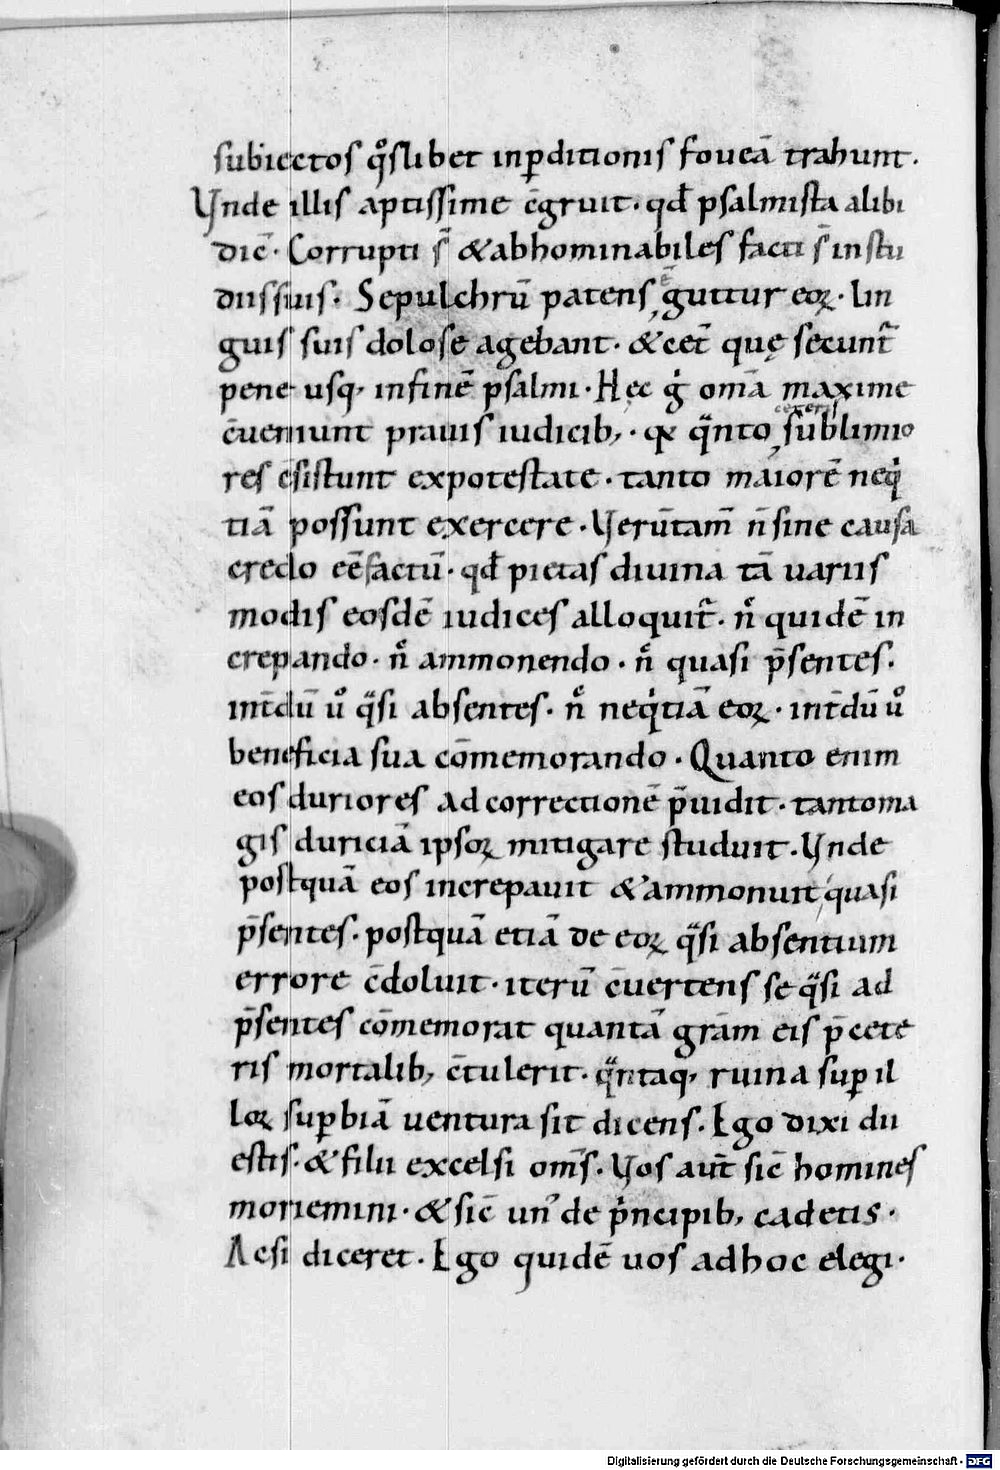 subiectos qͦslibet inp̱ditionis foueā trahunt.
Vnde illis aptissime c̄gruit· qđ psalmista alibi
dic̄· Corrupti s̄ &abhominabiles facti s̄ instu
diissuis· Sepulchrū patens ē guttur eoꝝ· Lin
guis suis dolose agebant· &cet̄ quę secunt᷑
pene usq; infinē psalmi· Hęc gͥ om̄a maxime
c̄ueniunt prauis iudicib; · qͥ qͣnto ceteris sublimio
res c̄sistunt expotestate· tanto maiorē neqͥ
tiā possunt exercere· Verūtam̄ n̄ sine causa
credo eē factū· qđ pietas diuina tā uariis
modis eosdē iudices alloquit᷑· nͨ quidē in
crepando· nͨ ammonendo· nͨ quasi p̄sentes·
int̄dū uͦ qͣsi absentes· nͨ neqͥtiā eoꝝ· int̄dū uͦ
beneficia sua cōmemorando· Quanto enim
eos duriores ad correctionē p̄uidit· tantoma
gis duriciā ipsoꝝ mitigare studuit. Vnde
postquā eos increpauit &ammonuit quasi
p̄sentes· postquā etiā de eoꝝ qͣsi absentium
errore c̄doluit· iterū c̄uertens se qͣsi ad
p̄sentes cōmemorat quantā grām eis p̄ cete
ris mortalib; c̄tulerit· qͣntaq; ruina suꝑ il
loꝝ suꝑbiā uentura sit dicens. Ego dixi dii
estis· &filii excelsi om̄s. Vos aut̄ sic̄ homines
moriemini· &sic̄ un᾽ de pͥncipib; cadetis·
Acsi diceret. Ego quidē uos adhoc elegi·
Digitalisierung gefördert durch die Deutsche Forschungsgemeinschaft - DFG